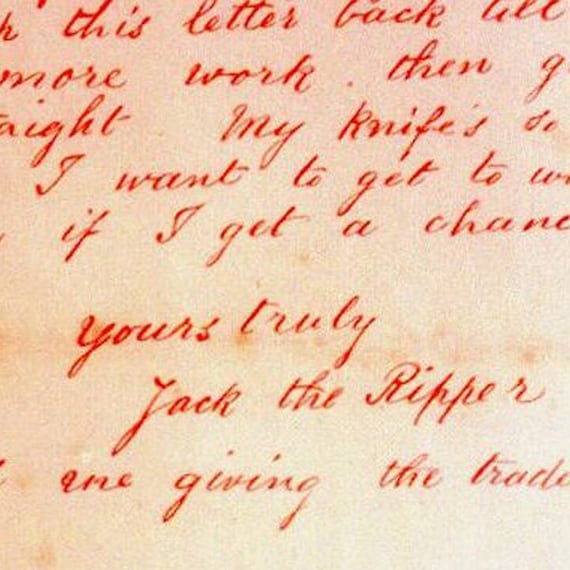 this letter back till
more work. then g
aight My knife's so
I want to get to w
if I get a chanc
yours truly
Jack the Ripper
me giving the trade